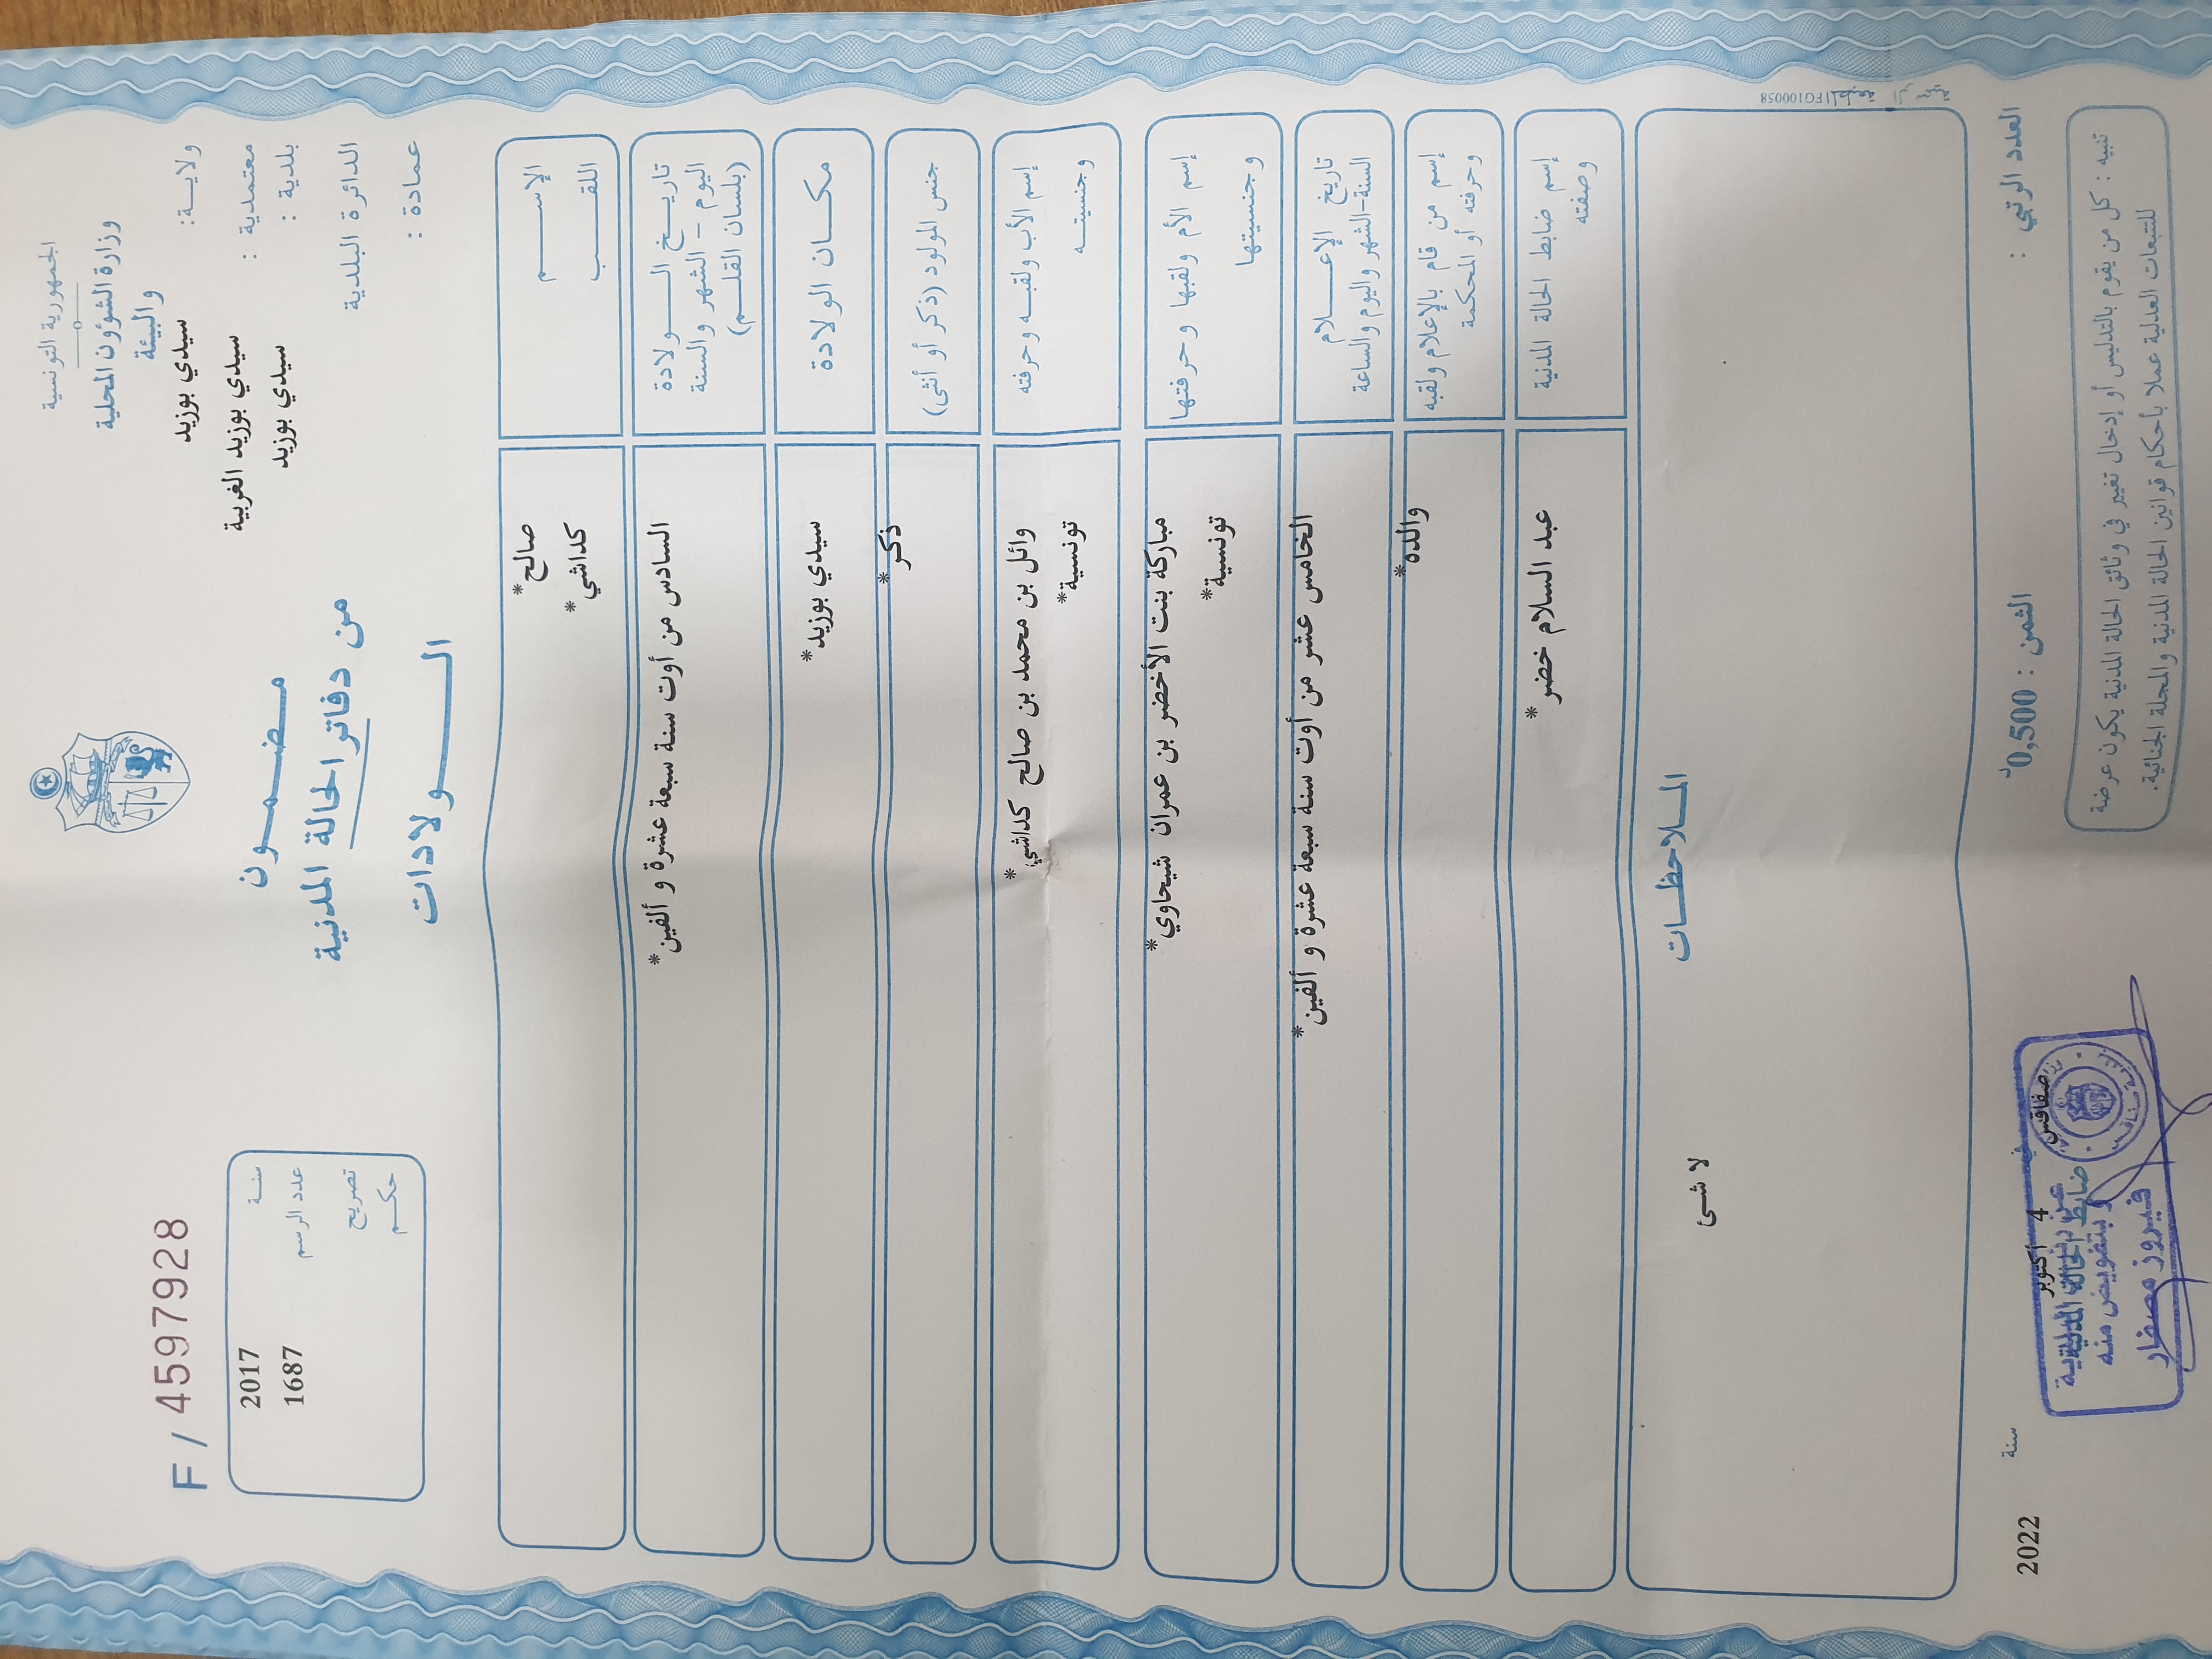 الجمهورية التونسية
وزارة الشؤون المحلية
والبيئة
ولايـــة: سيدي بوزيد
معتمدية : سيدي بوزيد الغربية
بلدية : سيدي بوزيد
الدائرة البلدية
عمادة :
مـضـمــون
من دفاتر الحالة المدنية
الــولادات
F / 4597928
سنـة 2017
عدد الرسم 1687
تصريح
حكـم
الإســـم صالح*
اللقــب كداشي*
تاريـخ الــولادة السادس من أوت سنة سبعة عشرة و ألفين*
اليوم – الشهر والسنة
(بلسان القلـم)
مكـان الولادة سيدي بوزيد*
جنس المولود (ذكر أو أنثى) ذكر*
إسم الأب ولقبـه وحرفته وائل بن محمد بن صالح كداشي*
وجنسيتـه تونسية*
إسم الأم ولقبها وحرفتها مباركة بنت الأخضر بن عمران شيحاوي*
وجنسيتها تونسية*
تاريخ الإعـــلام الخامس عشر من أوت سنة سبعة عشرة و ألفين*
السنة-الشهر واليوم والساعة
إسم من قام بالإعلام ولقبه والده*
وحرفته أو المحكمة
إسم ضابط الحالة المدنية عبد السلام خضر*
وصفته
المـلاحظـات
لا شئ
FG100058
العدد الرتبي :
الثمن : 0,500د
صفاقس في 4 أكتوبر سنة 2022
ضابط الحالة المدنية
و بتفويض منه
فيروز مصفار
تنبيه : كل من يقوم بالتدليس أو إدخال تغيير في وثائق الحالة المدنية يكون عرضة
للتتبعات العدلية عملا بأحكام قوانين الحالة المدنية والمجلة الجنائية.